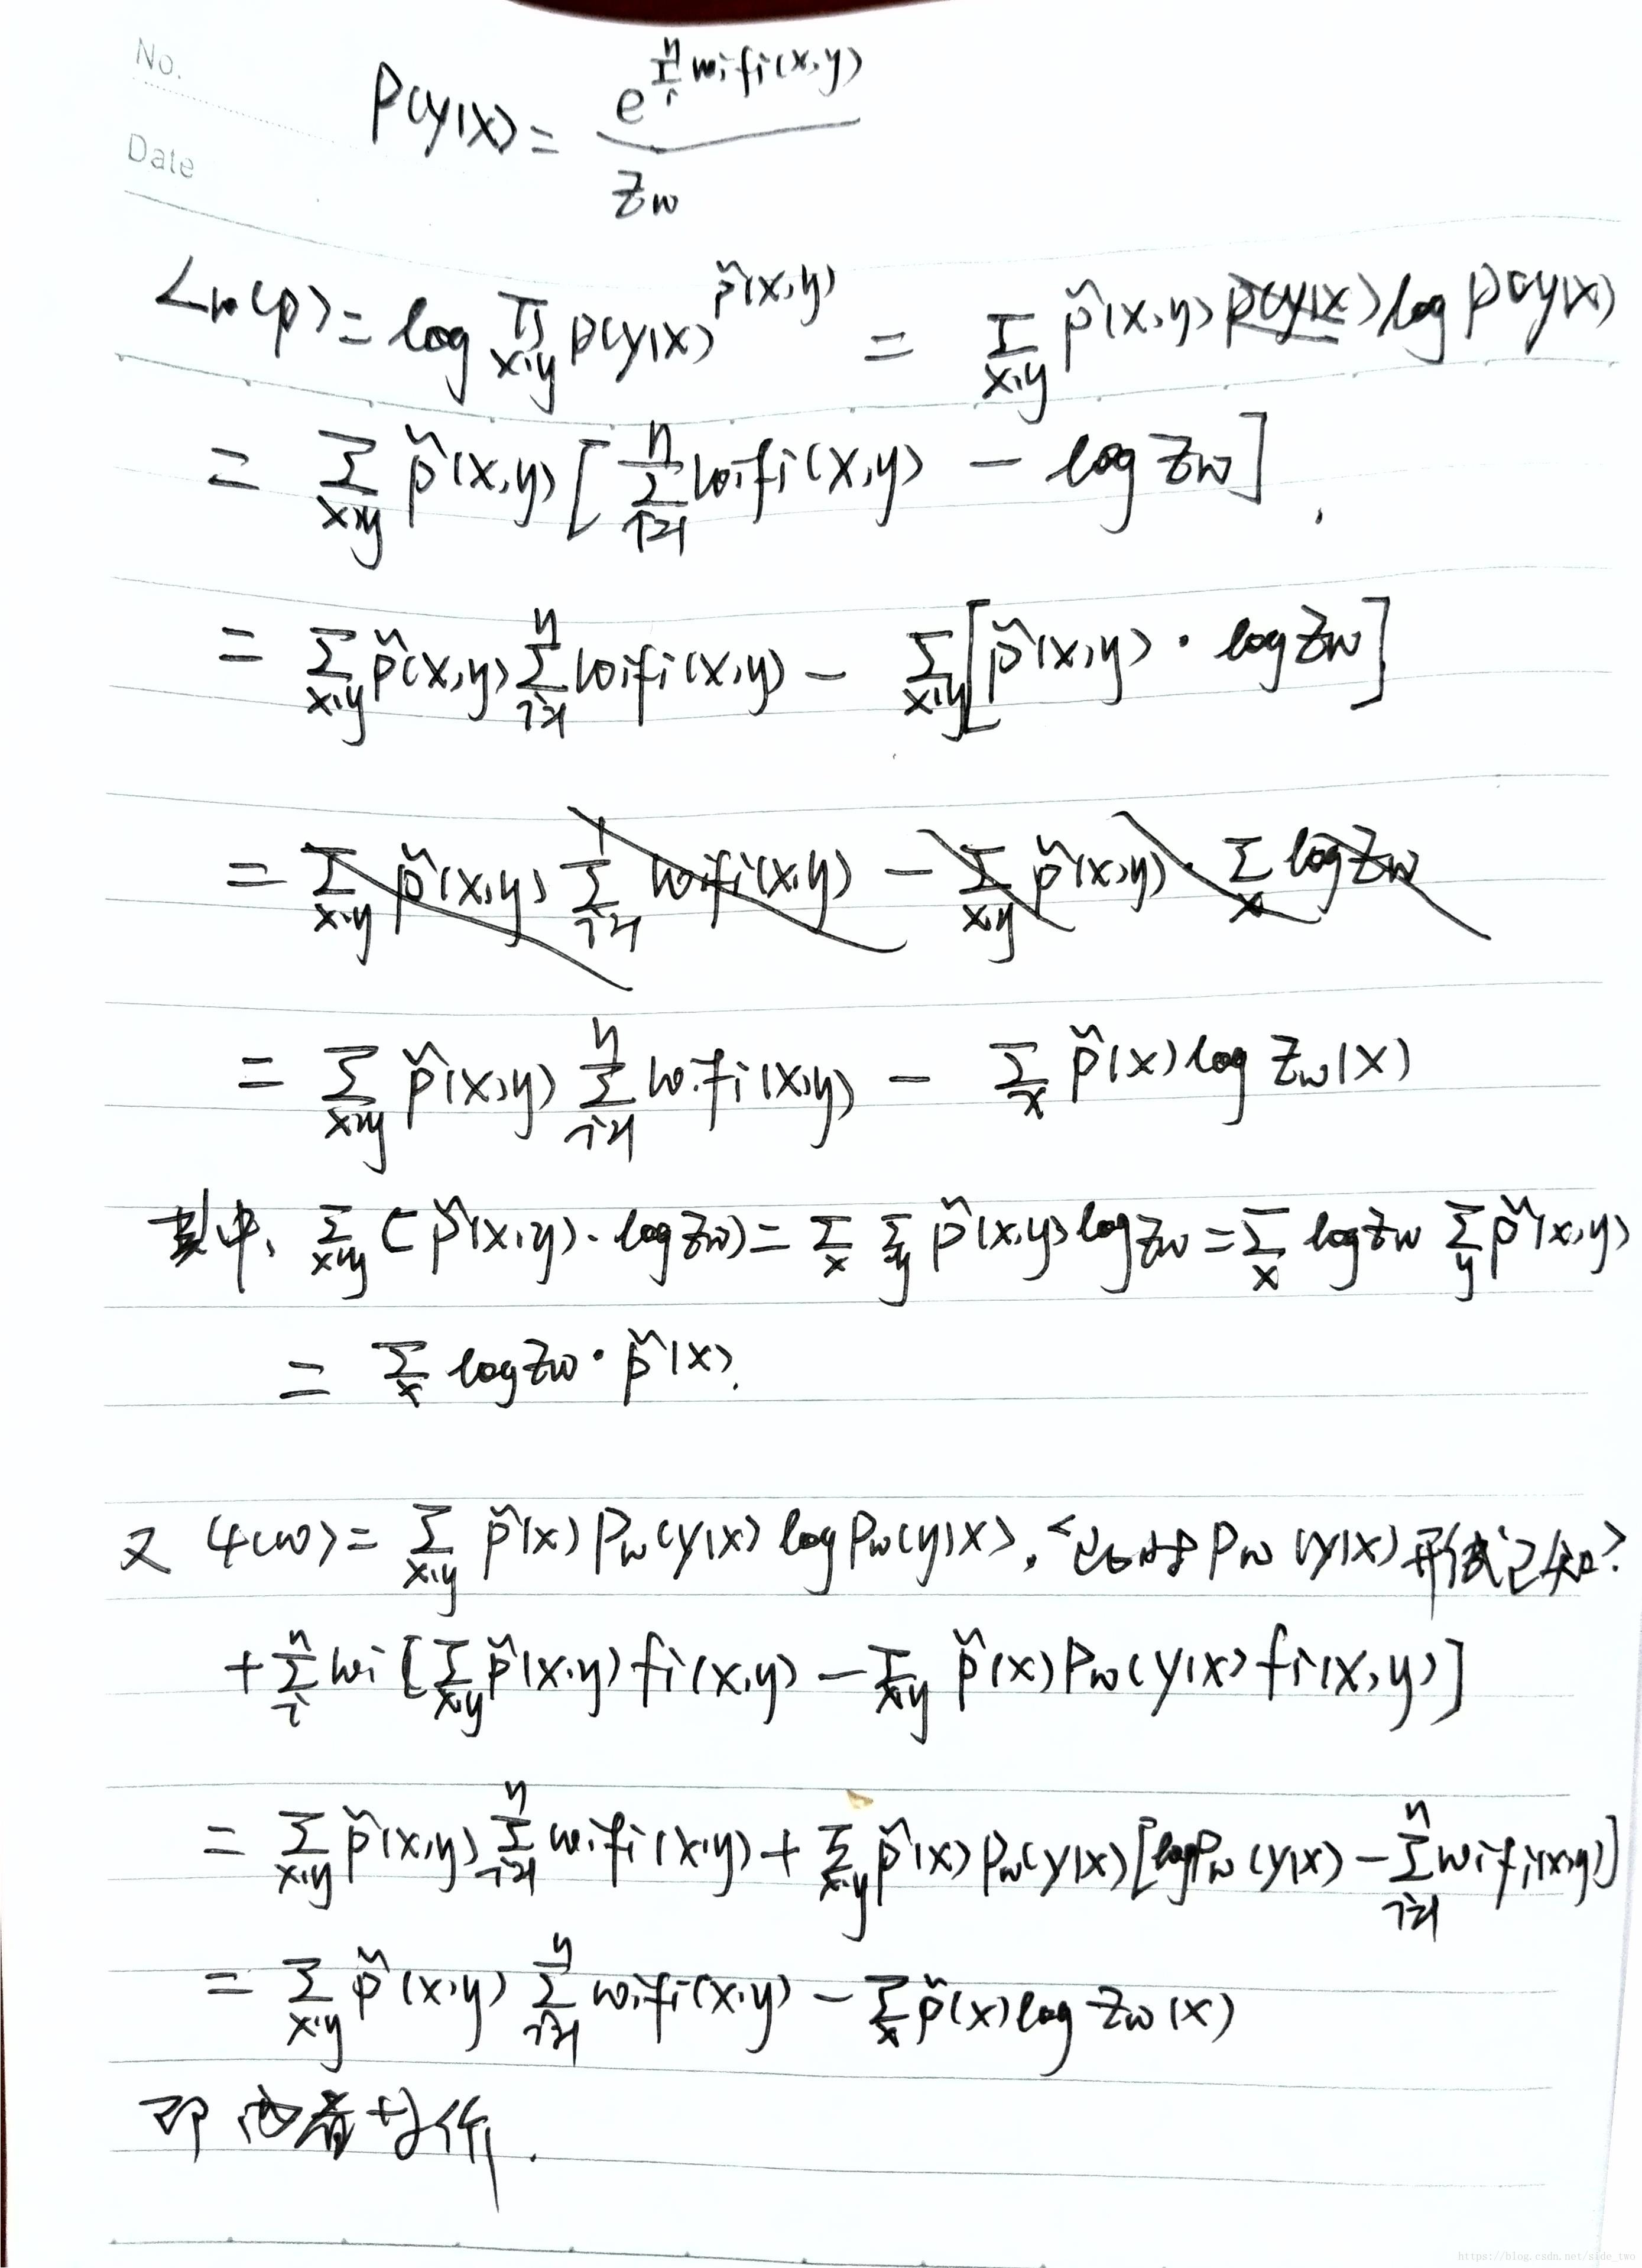 No.
Date
P(y|x) = e^{Σ_i^n wifi(x,y)} / Zw
Lw(p) = log ∏_{x,y} P(y|x)^{p̃(x,y)} = Σ_{x,y} p̃(x,y) log P(y|x)
= Σ_{x,y} p̃(x,y) [Σ_{i=1}^n wifi(x,y) - log Zw]
= Σ_{x,y} p̃(x,y) Σ_{i=1}^n wifi(x,y) - Σ_{x,y} [p̃(x,y) · log Zw]
= Σ_{x,y} p̃(x,y) Σ_{i=1} wifi(x,y) - Σ_{x,y} p̃(x,y) · Σ_x log Zw
= Σ_{x,y} p̃(x,y) Σ_{i=1}^n wifi(x,y) - Σ_x p̃(x) log Zw(x)
其中, Σ_{x,y} (p̃(x,y) · log Zw) = Σ_x Σ_y p̃(x,y) log Zw = Σ_x log Zw Σ_y p̃(x,y)
= Σ_x log Zw · p̃(x).
又 φ(w) = Σ_{x,y} p̃(x) Pw(y|x) log Pw(y|x), < 此时 Pw(y|x) 形式已知>
+ Σ_i^n wi [Σ_{x,y} p̃(x,y) fi(x,y) - Σ_{x,y} p̃(x) Pw(y|x) fi(x,y)]
= Σ_{x,y} p̃(x,y) Σ_{i=1}^n wifi(x,y) + Σ_{x,y} p̃(x) Pw(y|x) [log Pw(y|x) - Σ_{i=1}^n wifi(x,y)]
= Σ_{x,y} p̃(x,y) Σ_{i=1}^n wifi(x,y) - Σ_x p̃(x) log Zw(x)
即两者等价.
https://blog.csdn.net/side_two